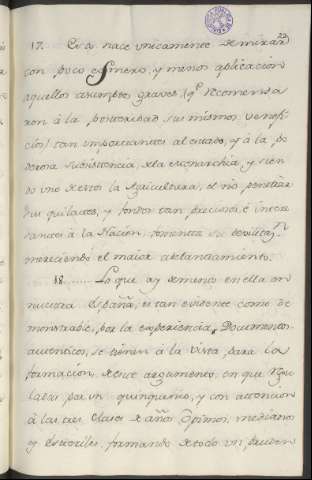 22
17. Esto nace unicamente de mirar
con poco esmero, y menos aplicacion
aquellos asumptos graves, q.e recomenda
ron à la posteridad sus mismos venefi
cios tan importantes al estado, y à la po
derosa subsistencia, de la Monarchia, y sien
do uno de estos la Agricultura, el no penetrar
sus quilates, y fondos tan preciosos, è intere
santes à la Nacion, fomenta su devilitaz.n
mereciendo el maior adelantamiento.
18. Lo que ay de menos en ella en
nuestra España, es tan evidente como de
monstrable, por la experiencia, Documentos
autenticos, se tienen à la vista para la
formacion, de este argumento, en que regu
lados por un quinquenio, y con attencion
à las tres clases de años Opimos, medianos
y esteriles, formando de todo un pruden